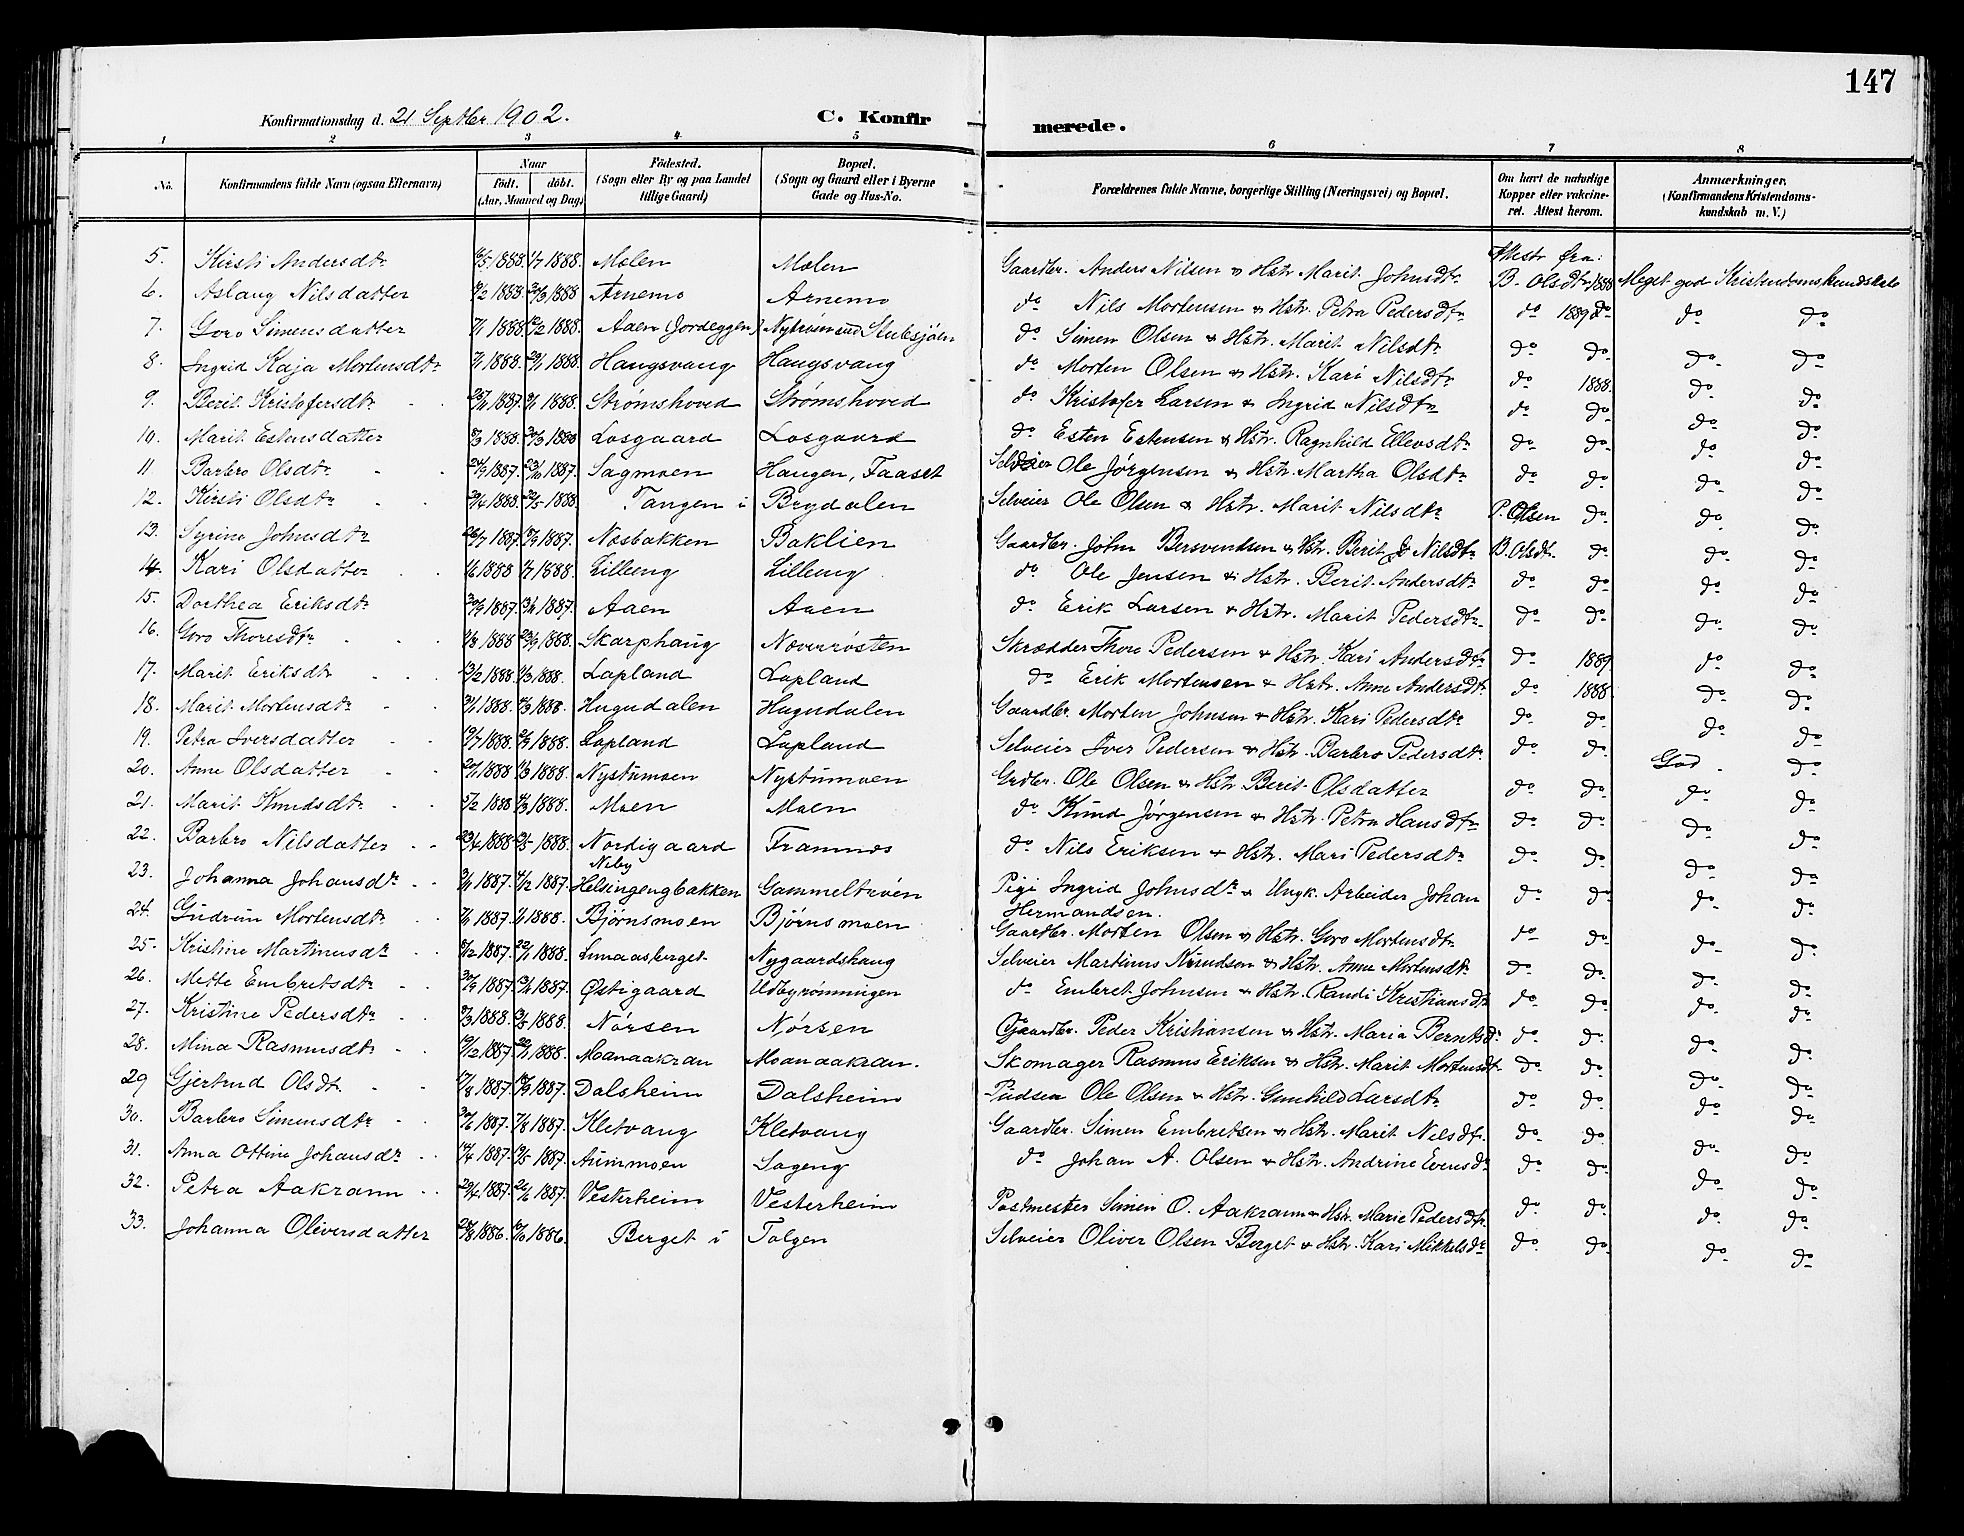 147
Konfirmationsdag d. 21 Septbr 1902.
C. Konfirmerede.
1 2 3 4 5 6 7 8
No.
Konfirmandens fulde Navn (ogsaa Efternavn)
Naar
födt. döbt.
(Aar, Maaned og Dag)
Födested.
(Sogn eller By og paa Landet
tillige Gaard)
Bopæl.
(Sogn og Gaard eller i Byerne
Gade og Hus-No.
Forældrenes fulde Navne, borgerlige Stilling (Næringsvei) og Bopæl.
Om havt de naturlige
Kopper eller vakcine-
ret. Attest herom.
Anmærkninger.
(Konfirmandens Kristendoms-
kundskab m. V.)
Attest fra:
5. Kirsti Andersdtr 1888. 1/7 1888. Mælen Mælen Gaardbr. Anders Nilsen & Hstr. Marit Johnsdtr B. Olsdtr 1888 Meget god Kristendomskundskab
6. Aslaug Nilsdatter 1888. 1888 Arnemo Arnemo do Nils Mortensen & Hstr. Petra Pedersdtr do 1889 do do do
7. Goro Simensdatter 1888. 1888. Aaen (Jordeggen) Nytrøen Stubsjøen do Simen Olsen & Hstr. Marit Nilsdtr do do do do
8. Ingrid Kaja Mortensdtr 1888. 1888. Haugsvang Haugsvang do Morten Olsen & Hstr. Kari Nilsdtr do 1888. do do
9. Berit Kristofersdtr 1887. 1888. Strømshoved Strømshoved do Kristofer Larsen & Ingrid Nilsdtr do do do do
10. Marit Estensdatter 1888. 1888 Losgaard Losgaard do Esten Estensen & Hstr. Ragnhild Ellevsdtr do do do do
11. Barbro Olsdtr 1887. 1887. Sagmoen Haugen, Faaset Selveier Ole Jørgensen & Hstr. Martha Olsdtr do do do do
12. Kirsti Olsdtr 1888. 1888. Tangen i Brydalen Selveier Ole Olsen & Hstr. Marit Nilsdtr P. Olsen do do do
13. Syrine Johnsdtr 1887. 1887. Næsbakken Baklien Gaardbr. John Bersvendsen & Hstr. Berit Nilsdtr B. Olsdtr. do do do
14. Kari Olsdatter 1888 1/7 1888. Lilleeng Lilleeng do Ole Jensen & Hstr. Berit Andersdtr do do do do
15. Dorthea Eriksdtr 1887. 1887. Aaen Aaen do Erik Larsen & Hstr. Marit Pedersdtr do do do do
16. Goro Thoresdtr 1888 1888. Skarphaug Noverrøsten Skrædder Thore Pedersen & Hstr. Kari Andersdtr do 1889 do do
17. Marit Eriksdtr 1888 1888. Lapland Lapland do Erik Mortensen & Hstr. Anne Andersdtr do 1888. do do
18. Marit Mortensdtr 1888. 1888. Hugudalen Hugudalen Gaardbr. Morten Johnsen & Hstr. Kari Pedersdtr do do do do
19. Petra Iversdatter 1888. 1888. Lapland Lapland Selveier Iver Pedersen & Hstr. Barbro Pedersdtr do do God do
20. Anne Olsdatter 1888 1888. Nystumoen Nystumoen Grdbr. Ole Olsen & Hstr Berit Olsdatter do do do do
21. Marit Knudsdtr 5/2 1888 1888. Moen Moen do Knud Jørgensen & Hstr. Petra Hansdtr do do do do
22. Barbro Nilsdatter 1888 1888. Nordigaard Framnæs do Nils Eriksen & Hstr. Mari Pedersdtr do do do do
Neby
23. Johanna Johansdtr 1887. 1887. Helsingengbakken Gammeltrøen Pige Ingrid Johnsdtr & Ungk. Arbeider Johan Hermandsen. do do do do
24. Gudrun Mortensdtr 1887. 1888. Bjørnsmoen Bjørnsmoen Gaardbr. Morten Olsen & Hstr. Goro Mortensdtr do do do do
25. Kristine Martinusdtr 1887. 1888. Limaasberget Nygaardshaug Selveier Martinus Knudsen & Hstr. Anne Mortensdtr do do do do
26. Mette Embretsdtr 1887. 1887. Østigaard Udbyrønningen do Embret Johnsen & Hstr. Randi Kristiansdtr do do do do
27. Kristine Pedersdtr 1888. 1888. Nørsen Nørsen Gaardbr. Peder Kristiansen & Hstr. Maria Berntsdtr do do do do
28. Mina Rasmusdtr 1887. 1888. Moanaakran Moanaakran. Skomager Rasmus Eriksen & Hstr. Marit Mortensdtr do do do do
29 Gjertrud Olsdtr 1887. 1887. Dalsheim Dalsheim Ole Olsen & Hstr. Gunhild Larsdtr do do do do
30. Barbro Simensdtr 1887. 1887. Kletvang Kletvang Gaardbr. Simen Embretsen & Hstr. Marit Nilsdtr. do do do do
31. Anna Ottine Johansdtr 1887. 1887. Aummoen Sageng do Johan A. Olsen & Hstr. Andrine Evensdtr do do do do
32. Petra Aakrann 1887. 1887. Vesterheim Vesterheim Postmester Simen O. Aakrann & Hstr. Marie Pedersdtr. do do do do
33. Johanna Oliversdatter 1886. 1886. Berget i Tolgen Selveier Oliver Olsen Berget & Hstr. Kari Mikkelsdtr do do do do